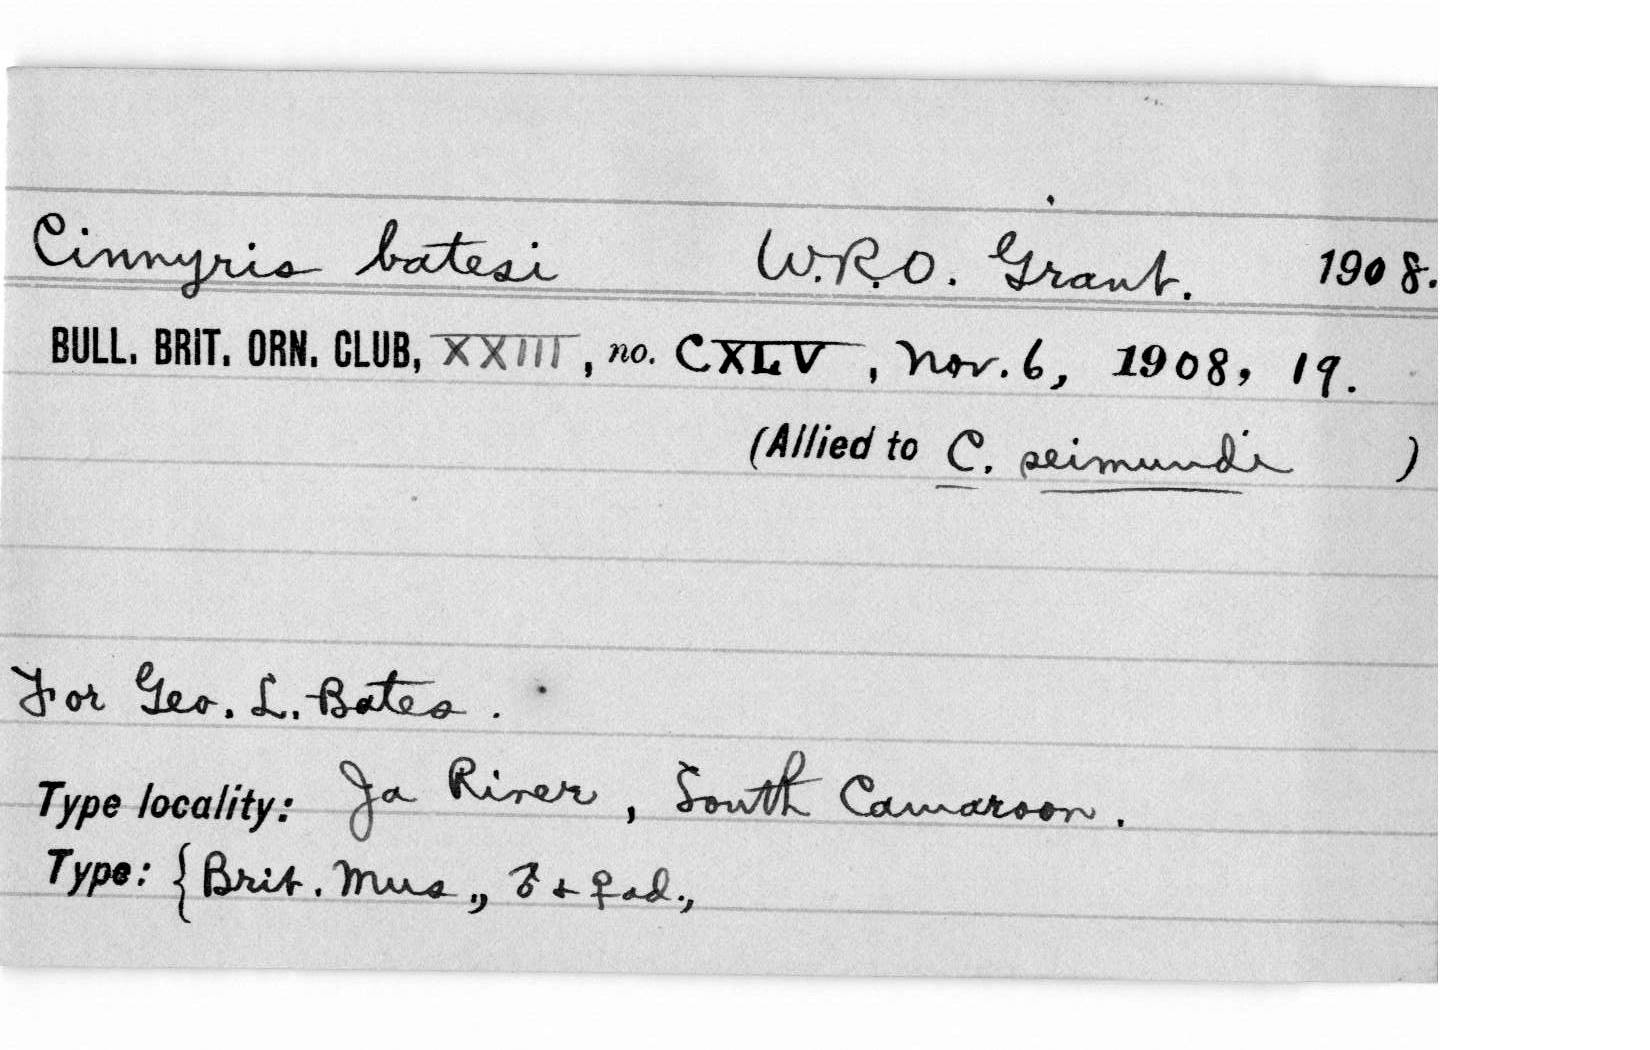 Cinnyris batesi W.R.O. Grant. 1908.
BULL. BRIT. ORN. CLUB, XXIII, no. CXLV, Nov. 6, 1908, 19.
(Allied to C. seimundi )
For Geo. L. Bates.
Type locality: Ja River, South Camaroon.
Type: {Brit. Mus., ♂ + ♀ ad.,